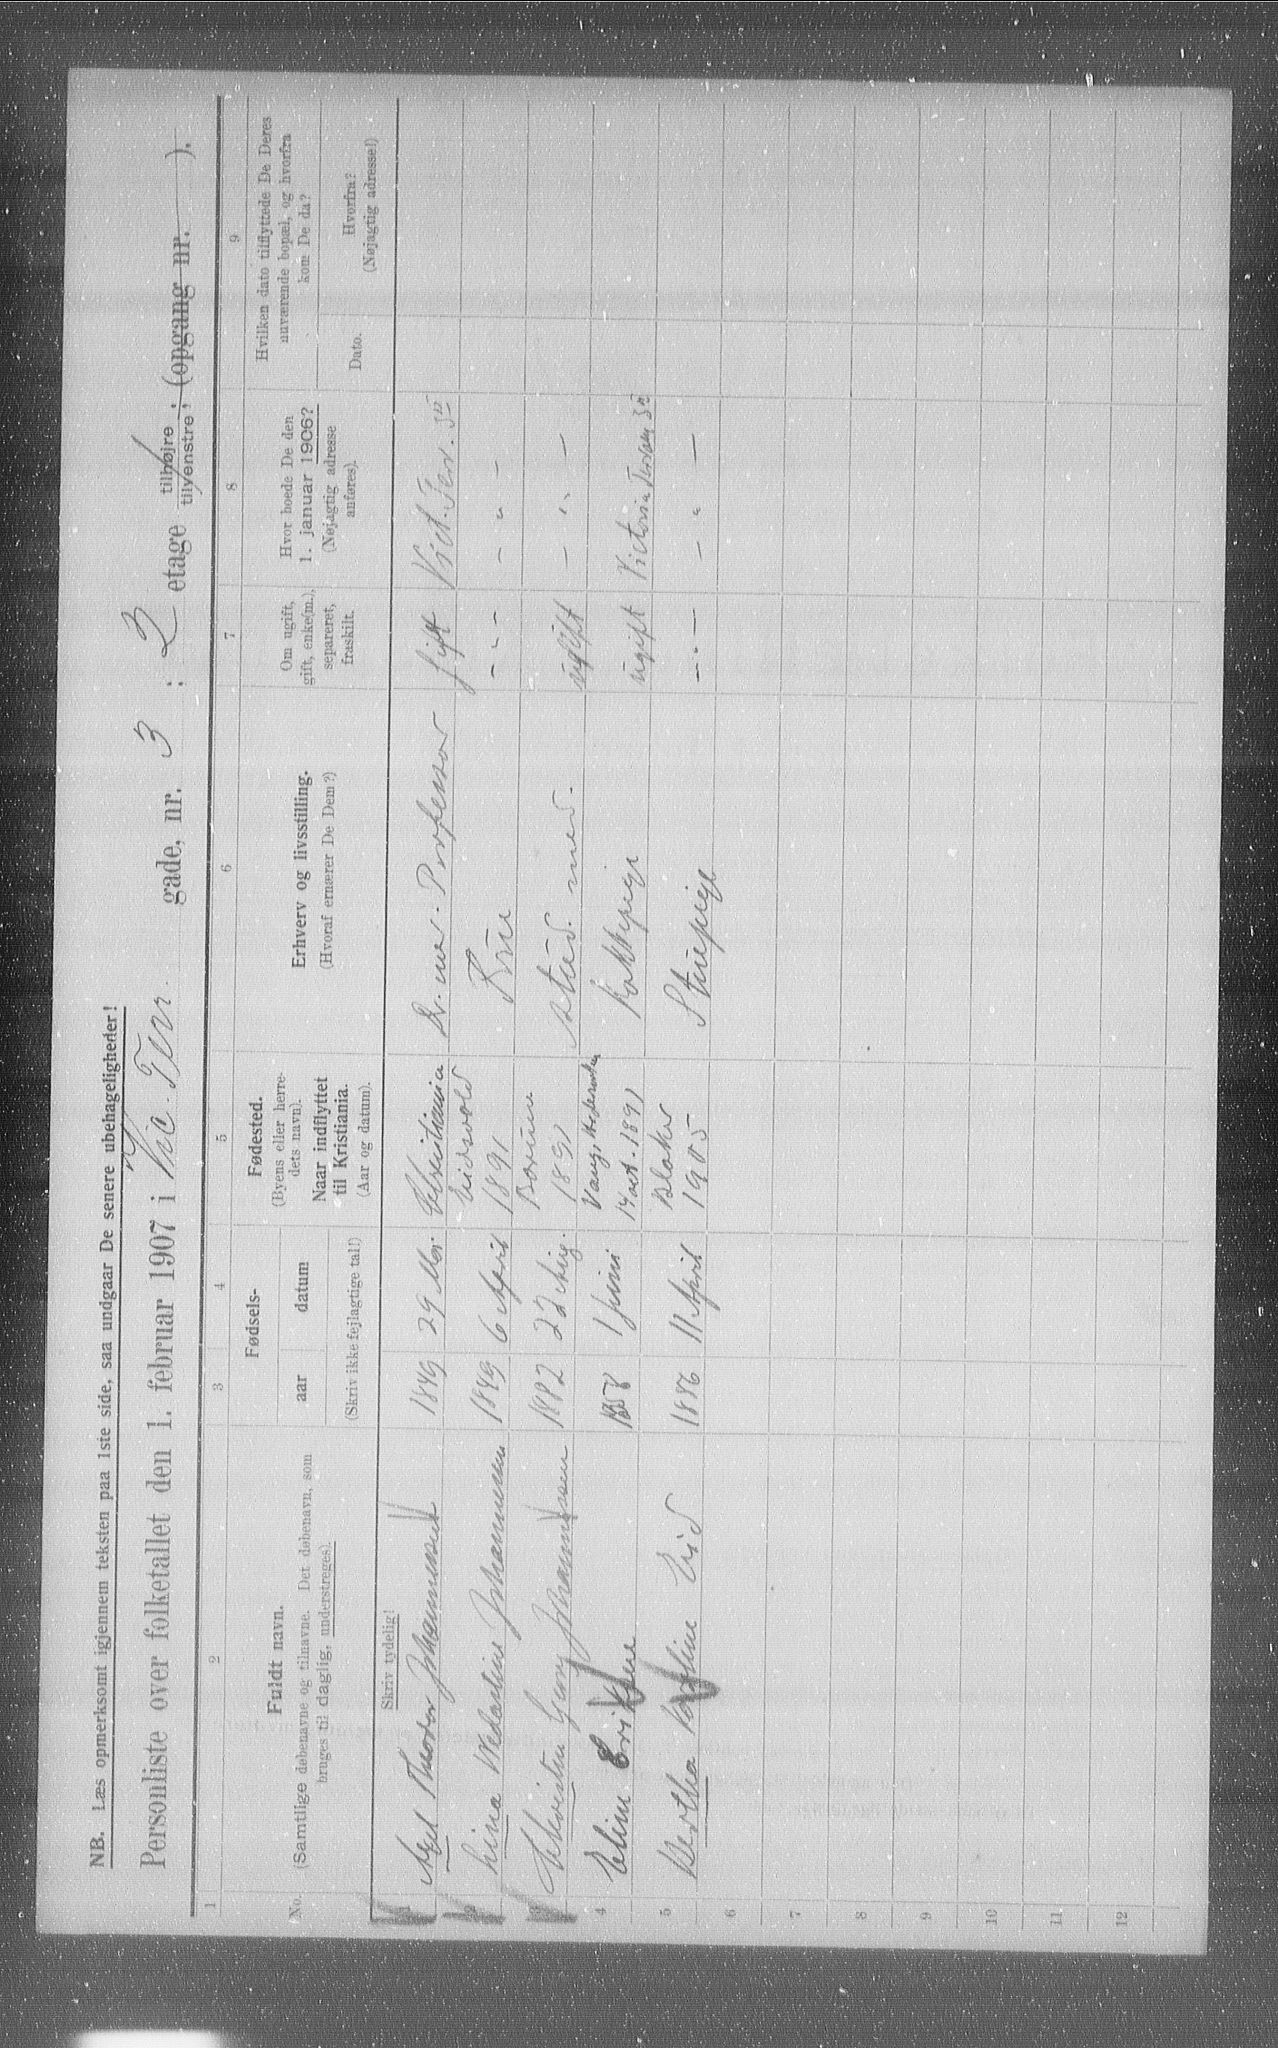 NB. Læs opmerksomt igjennem teksten paa 1ste side, saa undgaar De senere ubehageligheder!
Personliste over folketallet den 1. februar 1907 i Vic. Terr. gade, nr. 3 ; 2 etage tilhøjre tilvenstre ; (opgang nr. ).
1 2 3 4 5 6 7 8 9
No.
Fuldt navn.
(Samtlige døbenavne og tilnavne. Det døbenavn, som
bruges til daglig, understreges).
Fødsels-
aar datum
(Skriv ikke fejlagtige tal!)
Fødested.
(Byens eller herre-
dets navn).
Naar indflyttet
til Kristiania.
(Aar og datum).
Erhverv og livsstilling.
(Hvoraf ernærer De Dem?)
Om ugift,
gift, enke(m.),
separeret,
fraskilt.
Hvor boede De den
1. januar 1906?
(Nøjagtig adresse
anføres).
Hvilken dato tilflyttede De Deres
nuværende bopæl, og hvorfra
kom De da?
Dato.
Hvorfra?
(Nøjagtig adresse!)
Skriv tydelig!
Axel Theodor Johannessen 1849 29 Christiania Dr. med. Professor gift Vict. Terr. 3
2 Lina Johannessen 1849 6 April Eidsvold 1891 Frue - " -
3 Christen Johannessen 1882 22 Aug. Bærum 1891 stud. med. ugift - " -
4 Eline Eriksen 1 juni Vang, Hedemarken 14 oct. 1891 Kokkepige ugift Victoria Terrasse 3
5 Bertha Karoline Lid 1886 11 April Blaker 1905 Stuepige - " - - " -
6
7
8
9
10
11
12